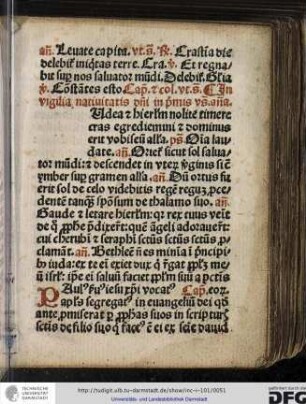 añ. Leuate capita. vt.s. R̃. Crastia die
delebit̃ iniq̃tas terre. Cra. v̾. Et regna-
bit sup̱ nos saluator mũdi. Delebit̃. Gl̃ia
v̾. Cõstãtes esto Cap̃. ⁊ col. vt.s. In
vigilia natiuitatis dñi in p̃mis vs. añã.
Iudea ⁊ hierl̃m nolite timere
cras egrediemini ⁊ dominus
erit vobiscũ all'a. ps̃. Oĩa lau-
date. añ. Oriet̃ sicut sol salua-
tor mũdi: ⁊ descendet in vterũ v̾ginis sicut
ymber sup̱ gramen all'a. añ. Dũ ortus fu-
erit sol de celo videbitis regẽ regũ
dentẽ tanq̃ sp̃osum de thalamo suo. añ.
Gaude ⁊ letare hierl̃m: qr rex tuus veĩt
de q̃ p̃phe p̃dixerũt: quẽ ãgeli adorauerũt:
cui cherubĩ ⁊ seraphĩ sctũs sctũs sctũs p̃-
clamãt. añ. Bethleẽ ñ es minĩa ĩ p̃ncipi-
bus iuda: ex te eĩ exiet dux q̃ r̃gat pp̃lz me-
ũ isrl̃: ip̃e eĩ saluũ faciet pp̃lm suũ a p̃ctis
Paul' ẜu' iesu xp̃i vocat' Cap̃.
apl̃s segregat' in euangeliũ dei q̃d
ante p̃miserat p̱ p̃phas suos in scriptur'
sctis de filio suo q̃ fact' ẽ ei ex seĩe dauid
TECHNISCHE
UNIVERSITÄT
DARMSTADT
http://tudigit.ulb.tu-darmstadt.de/show/inc-i-101/0051
Universitäts- und Landesbibliothek Darmstadt
gefördert durch
DFG